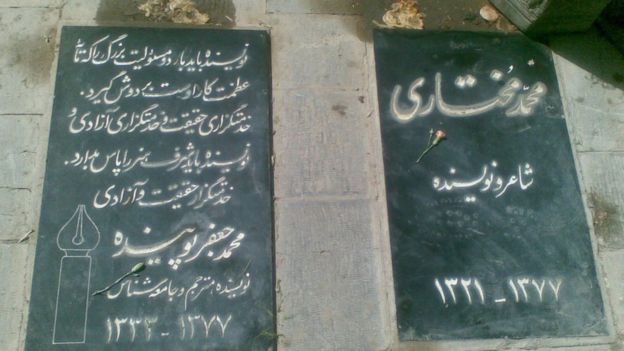 محمد مختاری
شاعر و نویسنده
۱۳۲۱ - ۱۳۷۷
نویسنده باید بار دو مسئولیت بزرگ را که
عظمت کار اوست بر دوش گیرد.
خدمتگزاری حقیقت و خدمتگزاری آزادی و
نویسنده باید شرف هنر را پاس دارد.
خدمتگزار حقیقت و آزادی
محمد جعفر پوینده
نویسنده مترجم و جامعه شناس
۱۳۳۳ - ۱۳۷۷